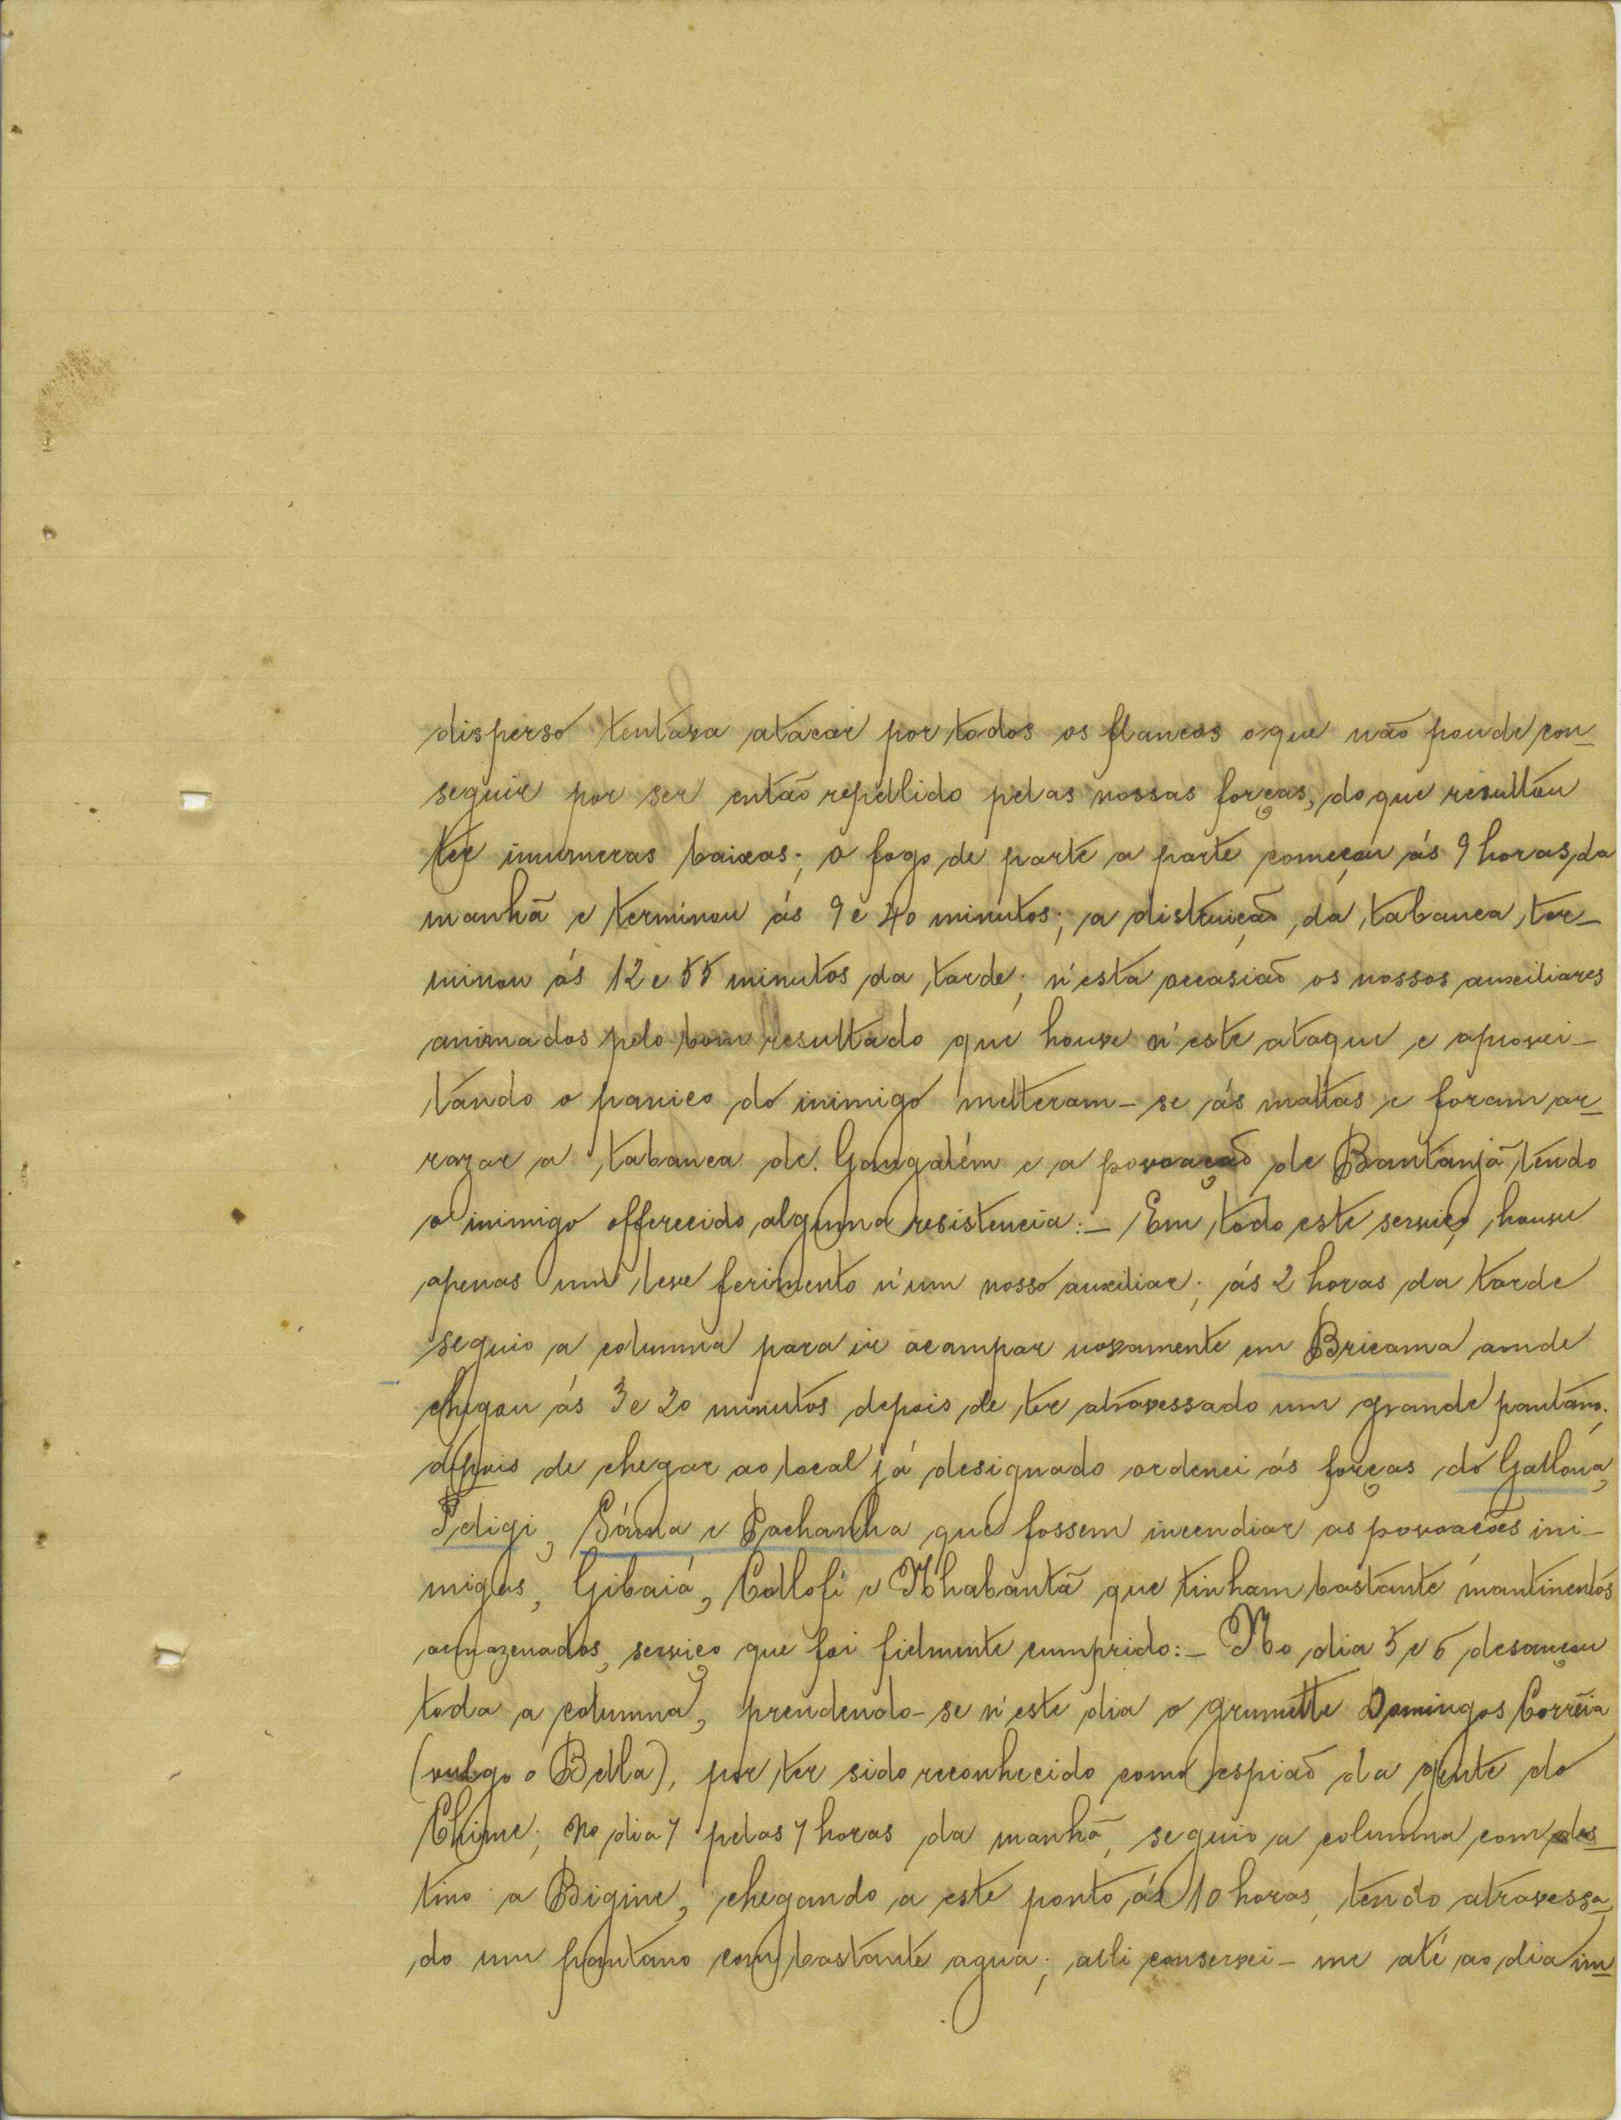 disperso tentava atacar por todos os flancos o que não poude con-
seguir por ser então repellido pelas nossas forças, do que resultou
ter inumeras baixas; o fogo de parte a parte começou ás 9 horas da
manhã e terminou ás 9 e 40 minutos; a distruição da tabanca ter-
minou ás 12 e 55 minutos da tarde; n'esta occasião os nossos auxiliares
animados pelo bom resultado que houve n'este ataque e aprovei-
tando o panico do inimigo metteram-se ás mattas e foram ar-
razar a tabanca de Gangalém e a povoação de Bantanjã tendo
o inimigo offerecido alguma resistencia:- Em todo este serviço houve
apenas um leve ferimento n'um nosso auxiliar; ás 2 horas da tarde
seguio a columna para ir acampar novamente em Bricama aonde
chegou ás 3 e 20 minutos depois de ter atravessado um grande pantano;
depois de chegar ao local já designado ordenei ás forças do Gallona,
Tedigi, Sáma e Pachanha que fossem incendiar as povoações ini-
migas, Gibaiá, Collofi e Nhabantã que tinham bastante mantinentos
armazenados, serviço que foi fielmente cumprido:- No dia 5 e 6 desançou
toda a columna, prendendo-se n'este dia o grumette Domingos Corrêia
(vulgo o Bella), por ter sido reconhecido como espião da gente do
Chime; no dia 7 pelas 7 horas da manhã, seguio a columna com des-
tino a Bigine, chegando a este ponto ás 10 horas, tendo atravessa-
do um pantano com bastante agua; alli conservei-me até ao dia im-